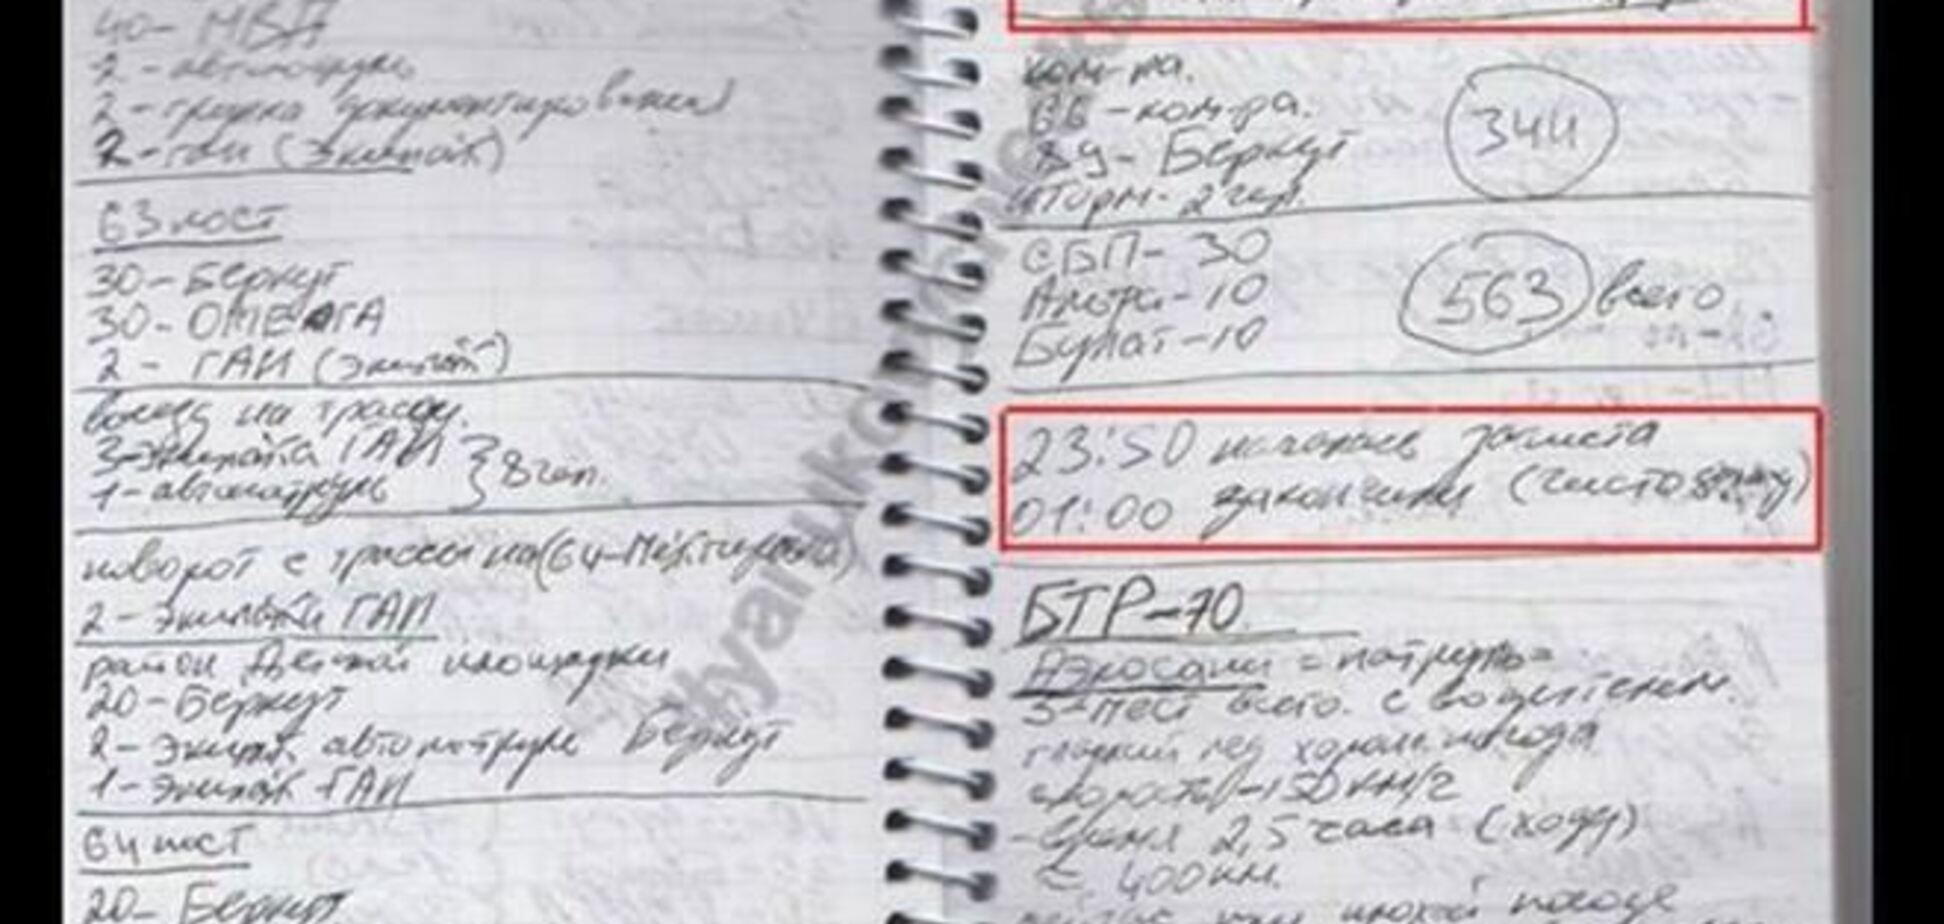 40- МВД
2 - автопатруль
2 - группа документирования
2 - ГАИ (экипаж)
63 пост
30- Беркут
30- ОМЕГА
2 - ГАИ (экипаж)
выезд на трассу.
3-экипажа ГАИ
1-автопатруль
8 чел.
поворот с трассы на (64-Межигорье)
2- экипажи ГАИ
район Детской площадки
20- Беркут
2- экипаж автопатруль Беркут
1- экипаж ГАИ
64 пост
20- Беркут
ком-ра.
ВВ -ком-ра.
Беркут
штурм- 2 чел.
344
СБП- 30
Альфа-10
Булат-10
563 всего
23:50 началась зачистка
01:00 закончили (чисто
БТР-70
Аэросани =патруль=
5-мест всего. с водителем.
гладкий лед хорош. погода
скорость-150 км/г
-время 2,5 часа (ходу)
≈ 400 км.
при плохой погоде